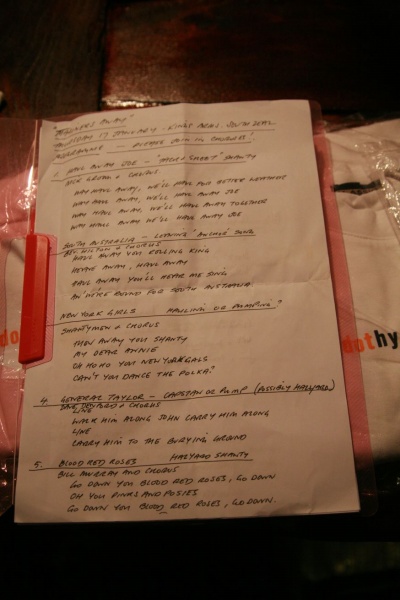 AWAY"
THURSDAY 17 JANUARY - KINGS ARMS, SOUTH ZEAL
PROGRAMME - PLEASE JOIN IN CHORUSES!
1. HAUL AWAY JOE - 'TACK & SHEET' SHANTY
& CHORUS
WAY HAUL AWAY, WE'LL HAUL FOR BETTER WEATHER
WAY HAUL AWAY, WE'LL HAUL AWAY JOE
WAY HAUL AWAY, WE'LL HAUL AWAY TOGETHER
WAY HAUL AWAY WE'LL HAUL AWAY JOE
SOUTH AUSTRALIA - SONG
& CHORUS
HAUL AWAY YOU ROLLING KING
HEAVE AWAY, HAUL AWAY
HAUL AWAY YOU'LL HEAR ME SING
BOUND FOR SOUTH AUSTRALIA.
NEW YORK GIRLS HAULING OR PUMPING?
SHANTYMEN & CHORUS
THEN AWAY YOU SHANTY
MY DEAR ANNIE
OH HO HO YOU NEW YORK GALS
CAN'T YOU DANCE THE POLKA?
4. GENERAL TAYLOR - CAPSTAN OR PUMP (POSSIBLY HALYARD)
& CHORUS
LINE
WALK HIM ALONG JOHN CARRY HIM ALONG
LINE
CARRY HIM TO THE BURYING GROUND
5. BLOOD RED ROSES HALYARD SHANTY
BILL MURRAY AND CHORUS
GO DOWN YOU BLOOD RED ROSES, GO DOWN
OH YOU PINKS AND POSIES
GO DOWN YOU BLOOD RED ROSES, GO DOWN.
dothy
do